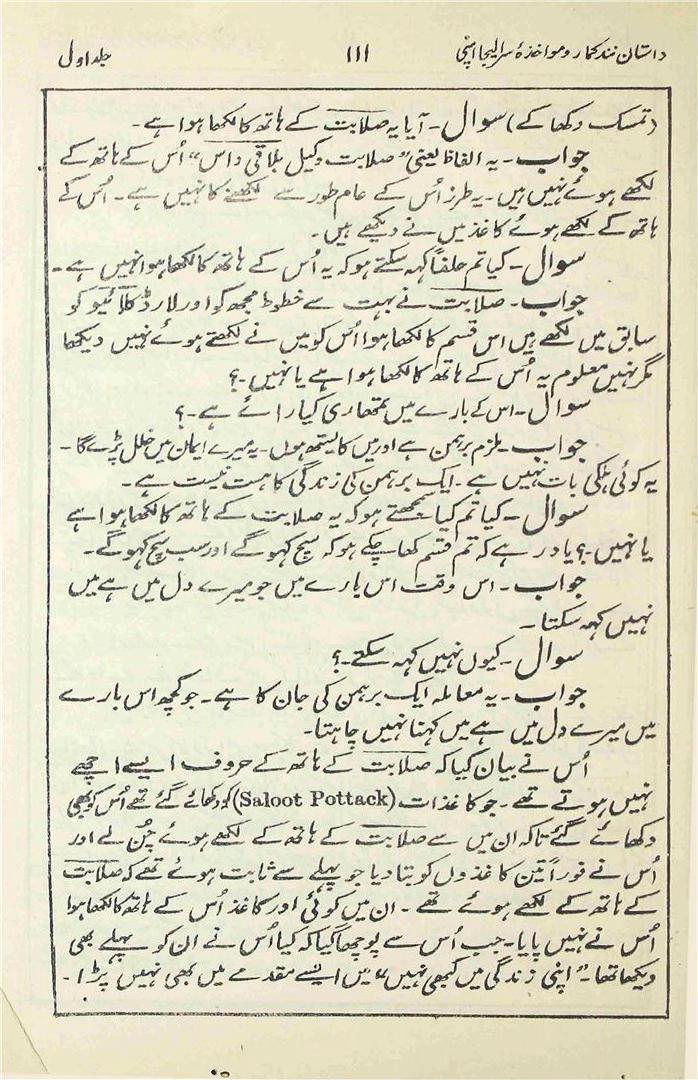 داستان نند کمار و مواخذۂ سر الیجا اپنی ۱۱۱ جلد اول
(تمسک دکھا کے) سوال۔ آیا یہ صلابت کے ہاتھ کا لکھا ہوا ہے۔
جواب۔ یہ الفاظ یعنی "صلابت وکیل بلاقی داس" اُس کے ہاتھ کے
لکھے ہوئے نہیں ہیں۔ یہ طرز اُس کے عام طور سے لکھنے کا نہیں ہے۔ اُس کے
ہاتھ کے لکھے ہوئے کاغذ میں نے دیکھے ہیں۔
سوال۔ کیا تم حلفاً کہہ سکتے ہو کہ یہ اُس کے ہاتھ کا لکھا ہوا نہیں ہے۔
جواب۔ صلابت نے بہت سے خطوط مجھ کو اور لارڈ کلائیو کو
سابق میں لکھے ہیں اس قسم کا لکھا ہوا اُس کو میں نے لکھتے ہوئے نہیں دیکھا
مگر نہیں معلوم یہ اُس کے ہاتھ کا لکھا ہوا ہے یا نہیں۔؟
سوال۔ اس کے بارے میں تمھاری کیا رائے ہے۔؟
جواب۔ ملزم برہمن ہے اور میں کایستھ ہوں۔ یہ میرے ایمان میں خلل پڑے گا۔
یہ کوئی ہلکی بات نہیں ہے۔ ایک برہمن کی زندگی کا ہست نیست ہے۔
سوال۔ کیا تم کیا سمجھتے ہو کہ یہ صلابت کے ہاتھ کا لکھا ہوا ہے
یا نہیں۔؟ یاد رہے کہ تم قسم کھا چکے ہو کہ سچ کہو گے اور سب سچ کہو گے۔
جواب۔ اس وقت اس بارے میں جو میرے دل میں ہے میں
نہیں کہہ سکتا۔
سوال۔ کیوں نہیں کہہ سکتے۔؟
جواب۔ یہ معاملہ ایک برہمن کی جان کا ہے۔ جو کچھ اس بارے
میں میرے دل میں ہے میں کہنا نہیں چاہتا۔
اُس نے بیان کیا کہ صلابت کے ہاتھ کے حروف ایسے اچھے
نہیں ہوتے تھے۔ جو کاغذات (Saloot Pottack) کو دکھائے گئے تھے اُس کو بھی
دکھائے گئے تاکہ ان میں سے صلابت کے ہاتھ کے لکھے ہوئے چُن لے اور
اُس نے فوراً تین کاغذوں کو بتا دیا جو پہلے سے ثابت ہوئے تھے کہ صلابت
کے ہاتھ کے لکھے ہوئے تھے۔ ان میں کوئی اور کاغذ اُس کے ہاتھ کا لکھا ہوا
اُس نے نہیں پایا۔ جب اُس سے پوچھا گیا کہ کیا اُس نے ان کو پہلے بھی
دیکھا تھا۔ "اپنی زندگی میں کبھی نہیں" میں ایسے مقدمے میں بھی نہیں پڑا۔